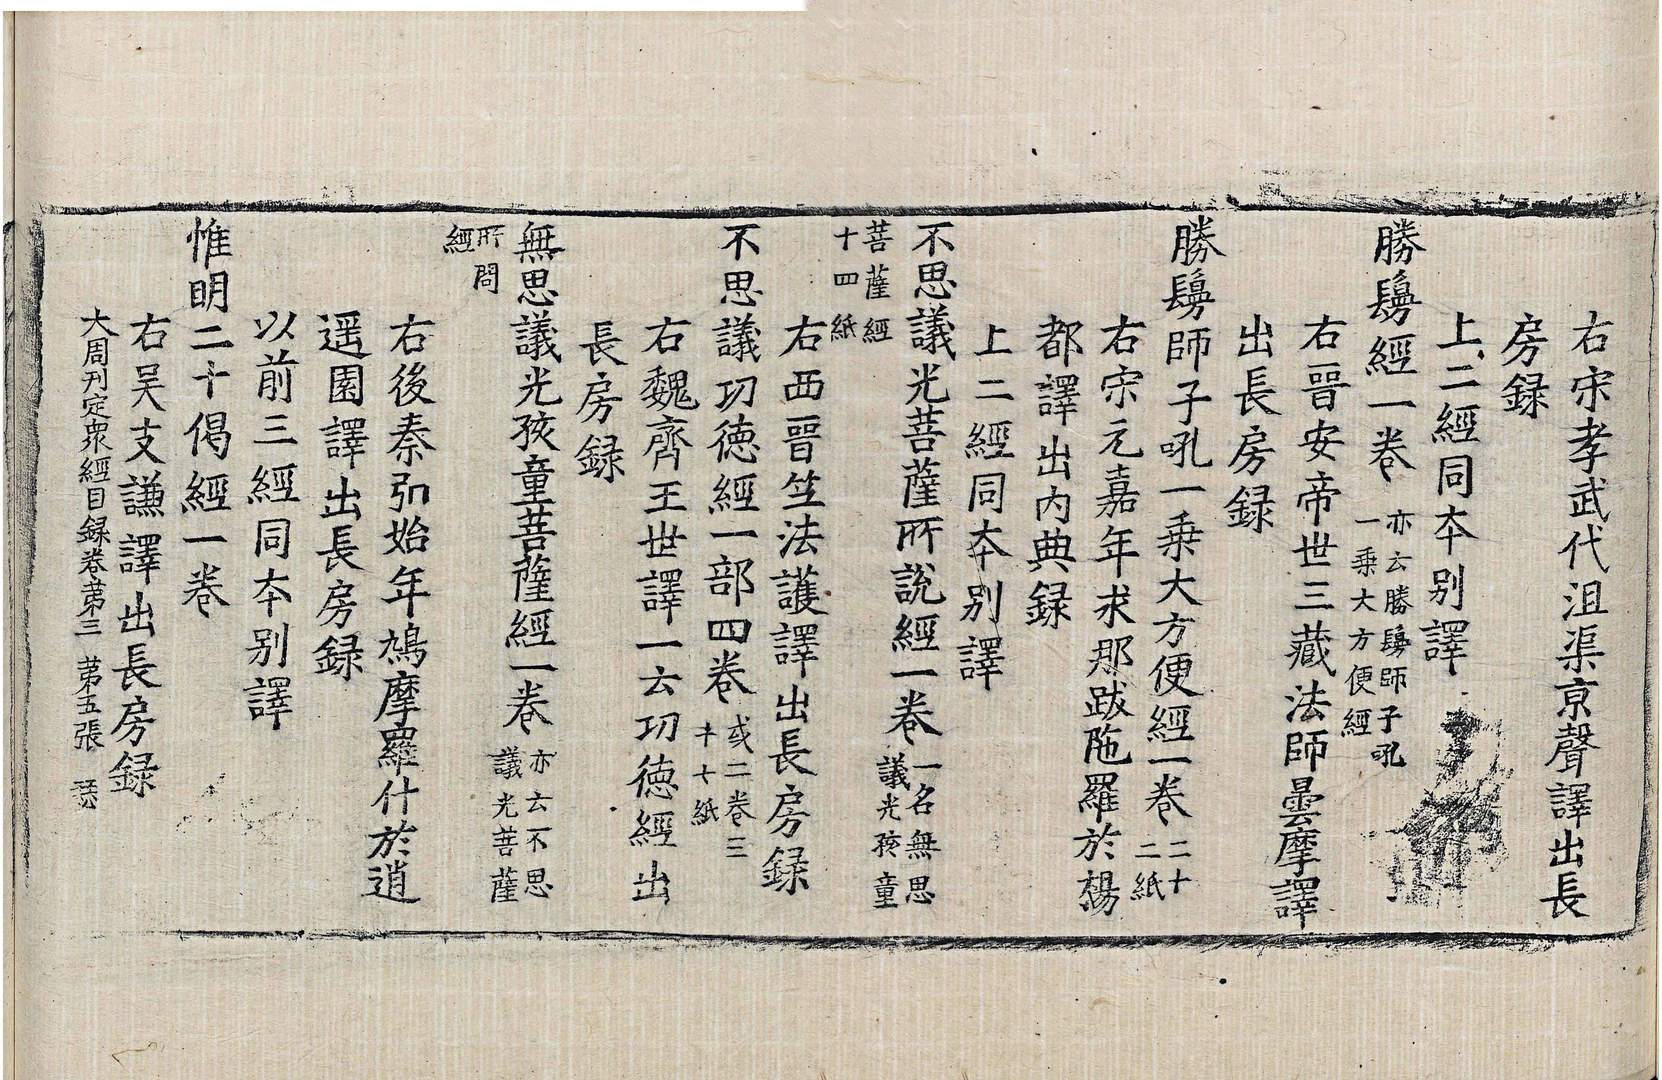 右宋孝武代沮渠京聲譯出長
房録
上二經同本别譯
勝鬘經一卷亦云勝鬘師子吼
一乗大方便經
右晉安帝世三藏法師曇摩譯
出長房録
勝鬘師子吼一乗大方便經一卷二十
二紙
右宋元嘉年求那跋陁羅於楊
都譯出内典録
上二經同本别譯
不思議光菩薩所說經一卷一名無思
議光孩童
菩薩經
十四紙
右西晉竺法護譯出長房録
不思議功徳經一部四卷或二卷三
十七紙
右魏齊王世譯一云功徳經出
長房録
無思議光孩童菩薩經一卷亦云不思
議光菩薩
所問
經
右後秦弘始年鳩摩羅什於逍
遥園譯出長房録
以前三經同本别譯
惟明二十偈經一卷
右吴支謙譯出長房録
大周刊定衆經目録卷第三 第五張